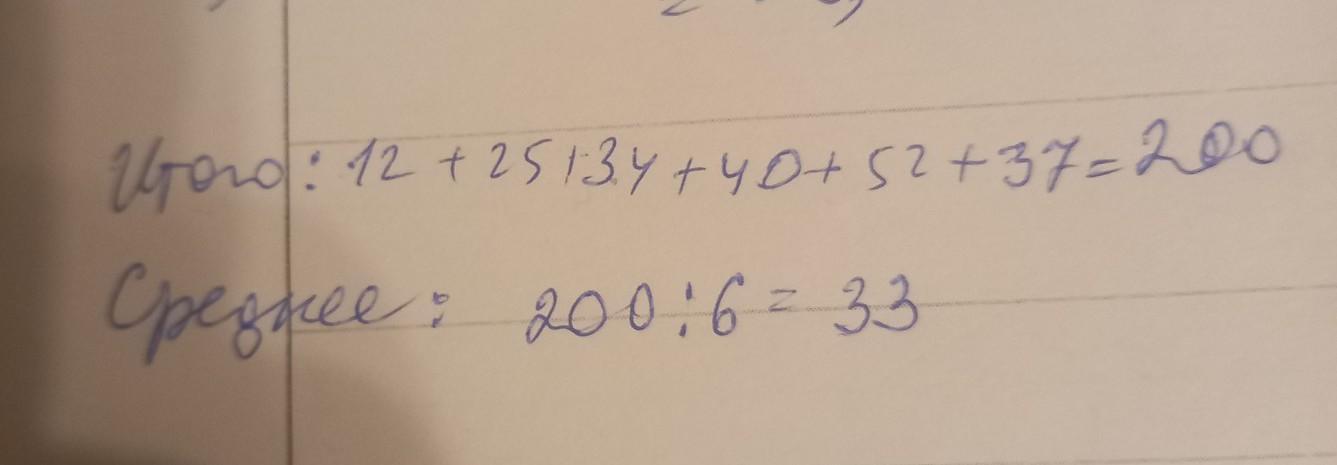 Итого: 12 + 25 + 34 + 40 + 52 + 37 = 200
Среднее: 200 : 6 = 33